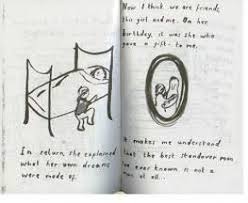 In return she explained
what her own dreams
were made of.
Now I think we are friends,
this girl and me. On her
birthday, it was she who
gave a gift - to me.
It makes me understand
that the best standover man
I've ever known is not a
man at all...